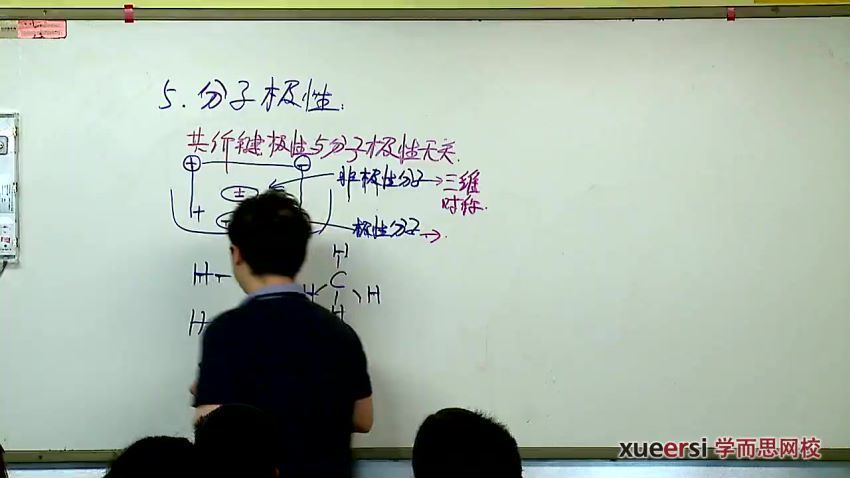 5. 分子极性.
共价键极性与分子极性无关.
⊕ ⊖
± 非极性分子→三维
对称.
+ 极性分子→.
H
H- C
H H
H H
xueersi 学而思网校